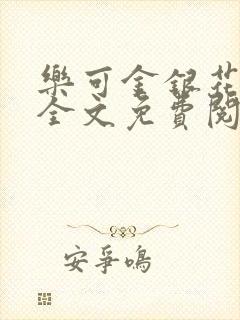 樂可金銀花
全文免費閱
安爭鳴